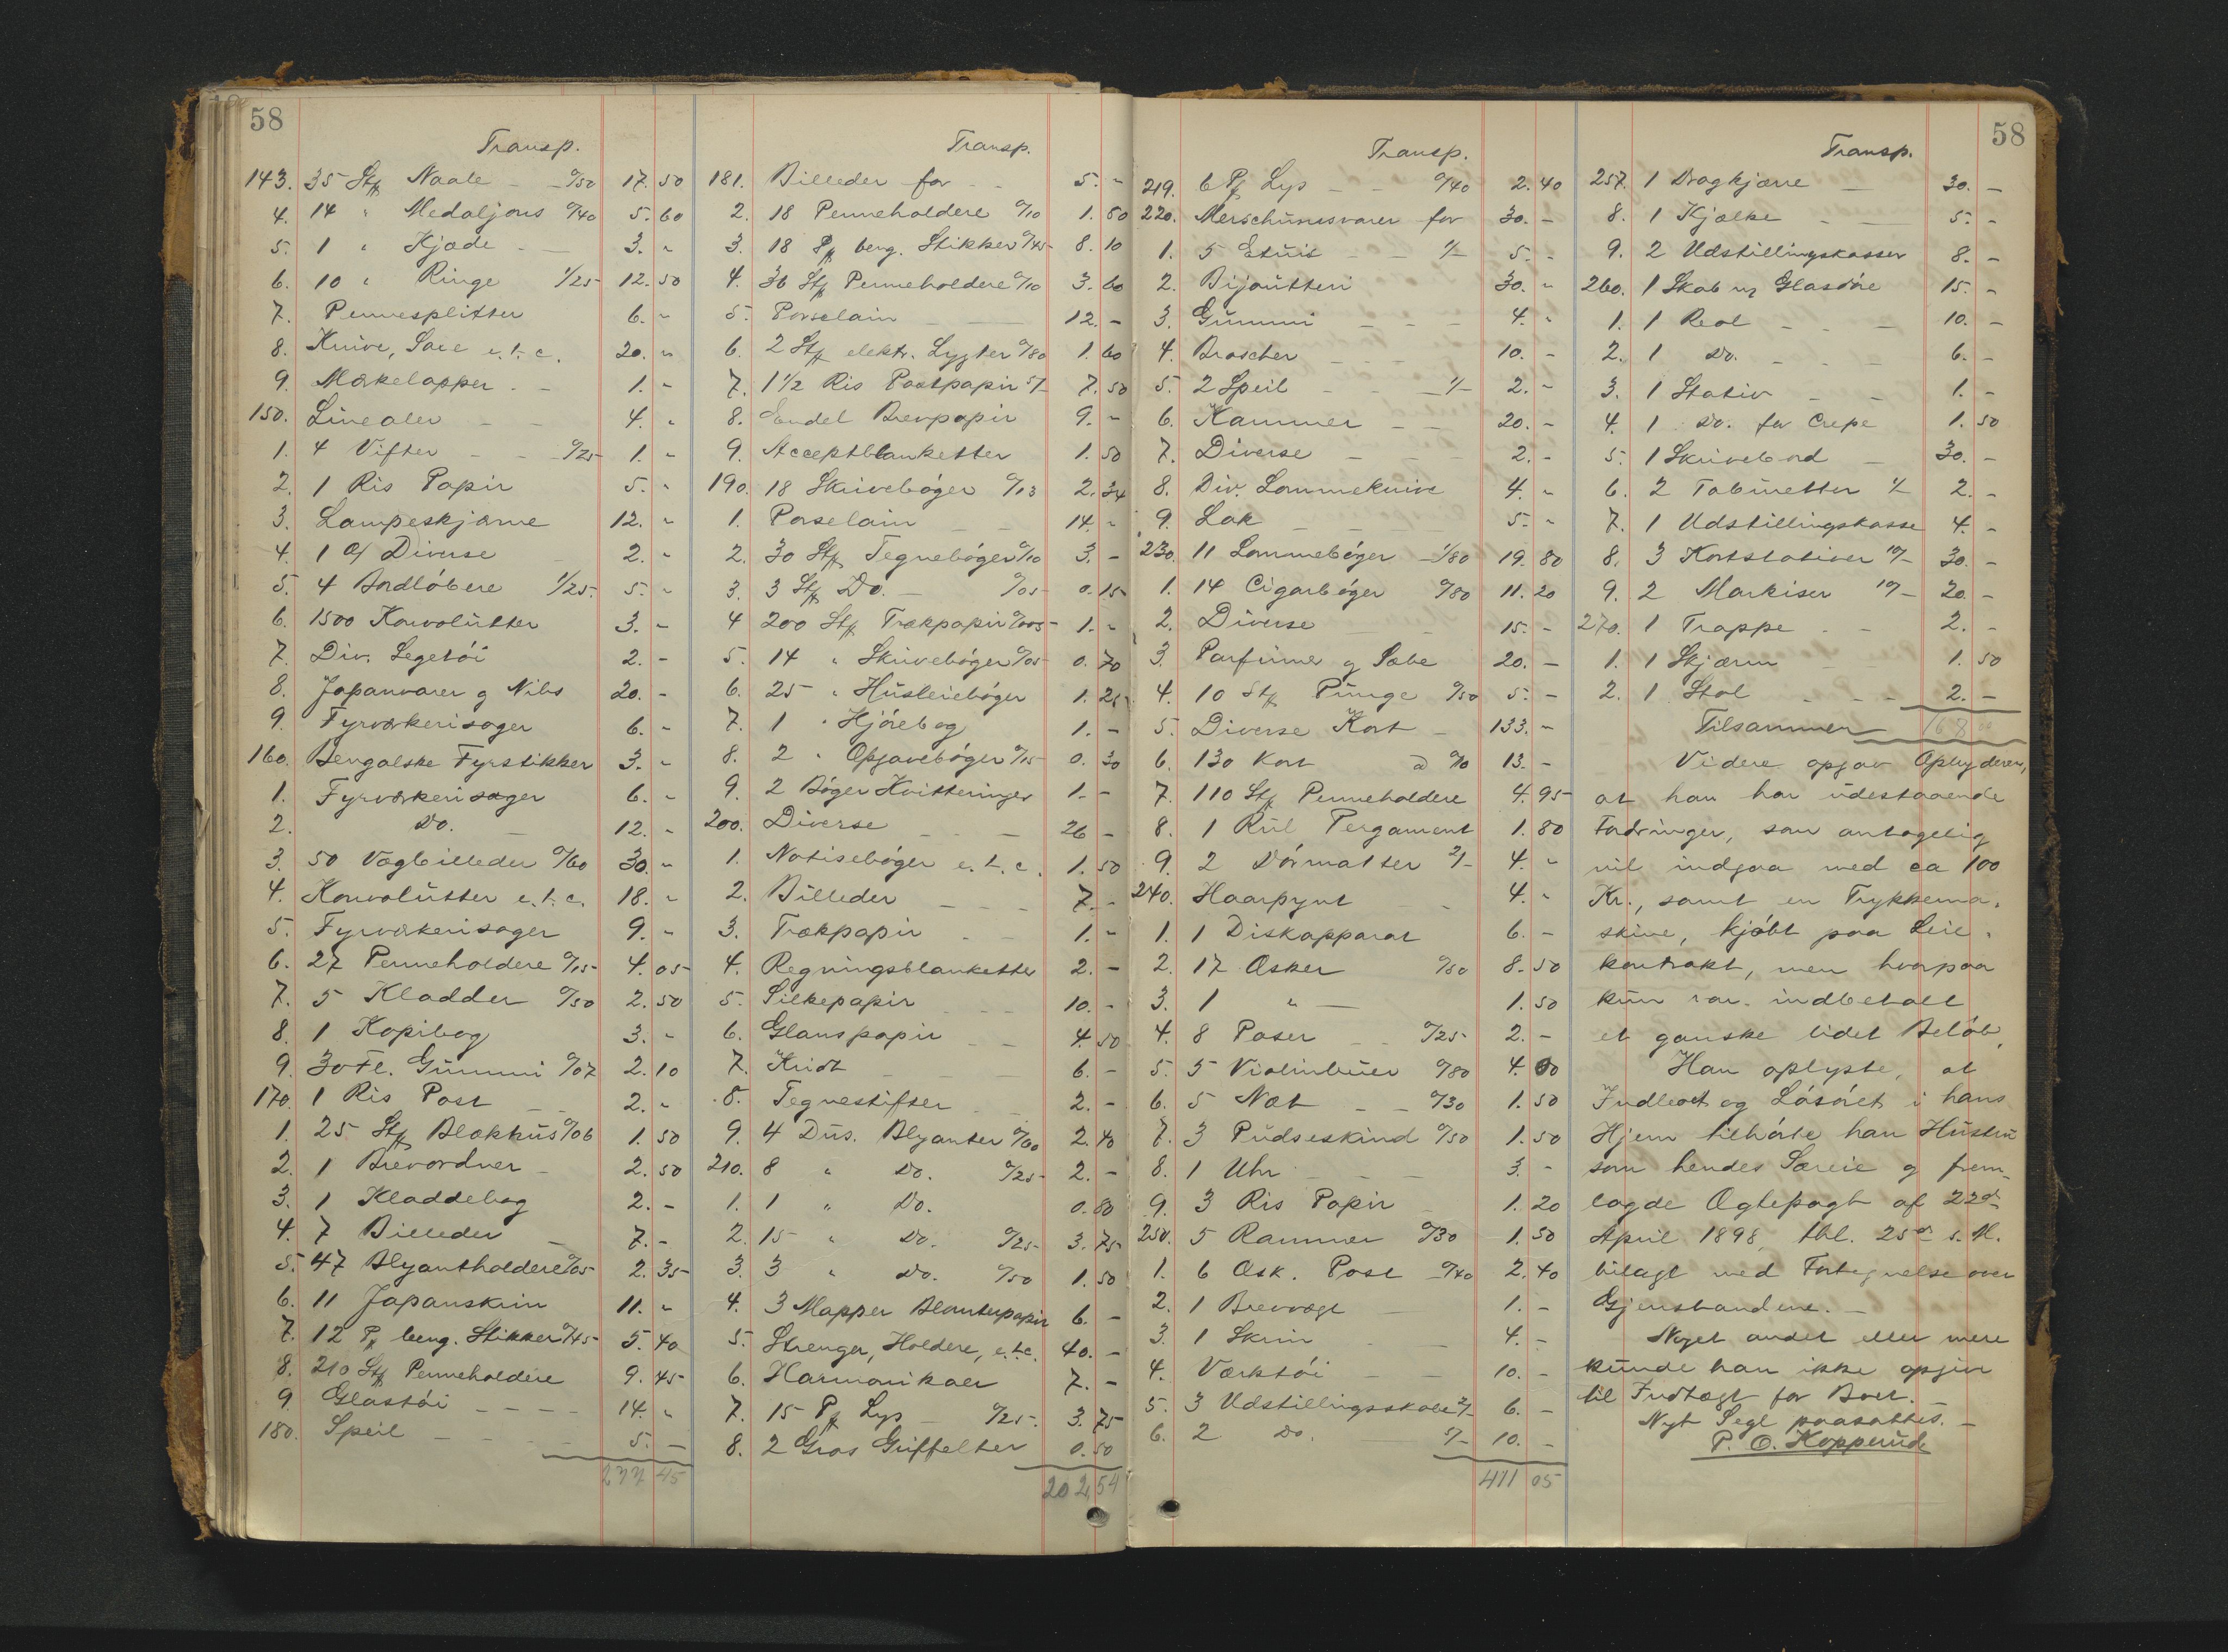 58
Transp.
143. 35 Stk Naale - - 0/50 17. 50
4. 14 " Medaljons 0/40 5. 60
5. 1 " Kjæde - - 3. "
6. 10 " Ringe 1/25 12. 50
7. Pennesplitter 6. "
8. Knive, Saxe e.t.c. 20. "
9. Mærkelapper - - 1. "
150. Linealer - - 4. "
1. 4 Vifter - - 0/25 1. "
2. 1 Ris Papir 5. "
3. Lampeskjærme 12. "
4. 1 Diverse 2. "
5. 4 Bordløbere 1/25 5. "
6. 1500 Konvolutter 3. -
7. Div. Legetøi 2. -
8. Japanvarer og Nibs 20. -
9. Fyrværkerisager 6. -
160. Bengalske Fyrstikker 3. "
1. Fyrværkerisager 6. "
2. Do. - 12. "
3. 50 Vægbilleder 0/60 30. "
4. Konvolutter e.t.c. 18. "
5. Fyrværkerisager 9. "
6. 27 Penneholdere 0/15 4. 05
7. 5 Kladder 0/50 2. 50
8. 1 Kopibog 3. "
9. 30 Fl. Gummi 0/07 2. 10
170. 1 Ris Post - - 2. "
1. 25 Stk Blækhus 0/06 1. 50
2. 1 Brevordner - 2. 50
3. 1 Kladdebog 2. -
4. 7 Billeder - 7. -
5. 47 Blyantholdere 0/05 2. 35
6. 11 Japanskrin 11. "
7. 12 Pk beng. Stikker 0/45 5. 40
8. 210 Stk Penneholdere 9. 45
9. Glastøi - - - - 14. "
180. Speil - - - - 5. -
277 45
Transp.
181. Billeder for - - 5. "
2. 18 Penneholdere 0/10 1. 80
3. 18 Pk beng. Stikker 0/45 8. 10
4. 36 Stk Penneholdere 0/10 3. 60
5. Porselain 12. -
6. 2 Stk elektr. Lygter 0/80 1. 60
7. 1 1/2 Ris Postpapir 5/- 7. 50
8. Endel Brevpapir 9. -
9. Acceptblanketter 1. 50
190. 18 Skrivebøger 0/13 2. 34
1. Porselain - - 14. "
2. 30 Stk Tegnebøger 0/10 3. -
3. 3 Stk Do. - 0/05 0. 15
4 200 Stk Trækpapir 0/005 1. "
5. 14 " Skrivebøger 0/05 0. 70
6. 25 " Husleiebøger 1. 25
7. 1 " Hjørebog 1. -
8. 2 " Opgavebøger 0/15 0. 30
9. 2 Bøger Kvitteringer 1. -
200. Diverse - - - 26 -
1. Notisebøger e.t.c. 1. 50
2. Billeder - - - 7. -
3. Trækpapir - - 1. "
4. Regningsblanketter 2. -
5. Silkepapir - - - 10. -
6. Glanspapir - - 4. 50
7. Kridt - - - 6. -
8. Tegnestifter - - 2. -
9. 4 Dus. Blyanter 0/60 2. 40
210. 8 " Do. 0/25 2. -
1. 1 " Do. 0. 80
2. 15 " Do. 0/25 3. 75
3. 3 " Do. 0/50 1. 50
4. 3 Mapper Blomsterpapir 6. -
5. Strenger, Holdere, e.t.c. 40. -
6. Harmonikaer 7. -
7. 15 Pk Lys - 0/25 3. 75
8. 2 Gros Griffelter 0. 50
202 54
58
Transp.
219. 6 Pk Lys - - 0/40 2. 40
220. Merschumsvarer for 30. -
1. 5 Etuis - - 1/- 5. -
2. Bijoutteri 30. "
3. Gummi - - - 4. "
4. Broscher - - - 10. -
5. 2 Speil - - 1/- 2. -
6. Kammer - - 20. -
7. Diverse - - - 2. -
8. Div. Lommeknive 4. "
9. Lak - - - - 5. "
230. 11 Lommebøger - 1/80 19. 80
1. 14 Cigarbøger 0/80 11. 20
2. Diverse - - 15. -
3. Parfumer og Sæbe 20. -
4. 10 Stk Punge 0/50 5. -
5. Diverse Kort - 133. -
6. 130 Kort à 0/10 13. -
7. 110 Stk Penneholdere 4. 95
8. 1 Rul Pergament 1. 80
9. 2 Dørmatter 2/- 4. "
240. Haarpynt - 4. "
1. 1 Diskapparat 6. -
2. 17 Æsker 0/50 8. 50
3. 1 " - 1. 50
4. 8 Poser - - 0/25 2. -
5. 5 Violinbuer 0/80 4. 00
6. 5 Næt - - 0/30 1. 50
7. 3 Pudseskind 0/50 1. 50
8. 1 Uhr - - - 3. -
9. 3 Ris Papir 1. 20
250. 5 Rammer 0/30 1. 50
1. 6 Æsk. Post - 0/40 2. 40
2. 1 Brevvægt - 1. -
3. 1 Skrin - - 4. -
4. Værktøi - - 10. -
5. 3 Udstillingsskabe 2/- 6. -
6. 2 Do. 5/- 10. -
411 05
Transp.
257. 1 Dragkjærre - 30. -
8. 1 Kjælke - - 5. -
9. 2 Udstillingskasser 8. -
260. 1 Skab m Glasdøre 15. -
1. 1 Reol - - - 10. -
2. 1 Do. - - - 6. -
3. 1 Stativ - - 1. -
4. 1 Do. for Crepe 1. 50
5. 1 Skrivebord - 30. -
6. 2 Taburetter 1/- 2. -
7. 1 Udstillingskasse 4. -
8. 3 Kortstativer 10/- 30. -
9. 2 Markiser 10/- 20. -
270. 1 Trappe - - 2. -
1. 1 Skjærm - - 1. 50
2. 1 Stol - - - 2. -
Tilsammen 168 00
Videre opgav Opbyderen,
at han har udestaaende
Fordringer, som antagelig
vil indgaa med ca 100
Kr., samt en Trykkema-
skine, kjøbt paa Leie-
kontrakt, men hvorpaa
kun var indbetalt
et ganske lidet Beløb,
Han oplyste, at
Indboet og Løsøret i hans
Hjem tilhørte han Hustru
som hendes Særeie og frem-
lagde Ægtepagt af 22de
April 1898, tbl. 25de s. M.
bilagt med Fortegnelse over
Gjenstandene. -
Noget andet eller mere
kunde han ikke opgive
til Indtægt for Boet. -
Nyt Segl paasattes. -
P. O. Kopperud